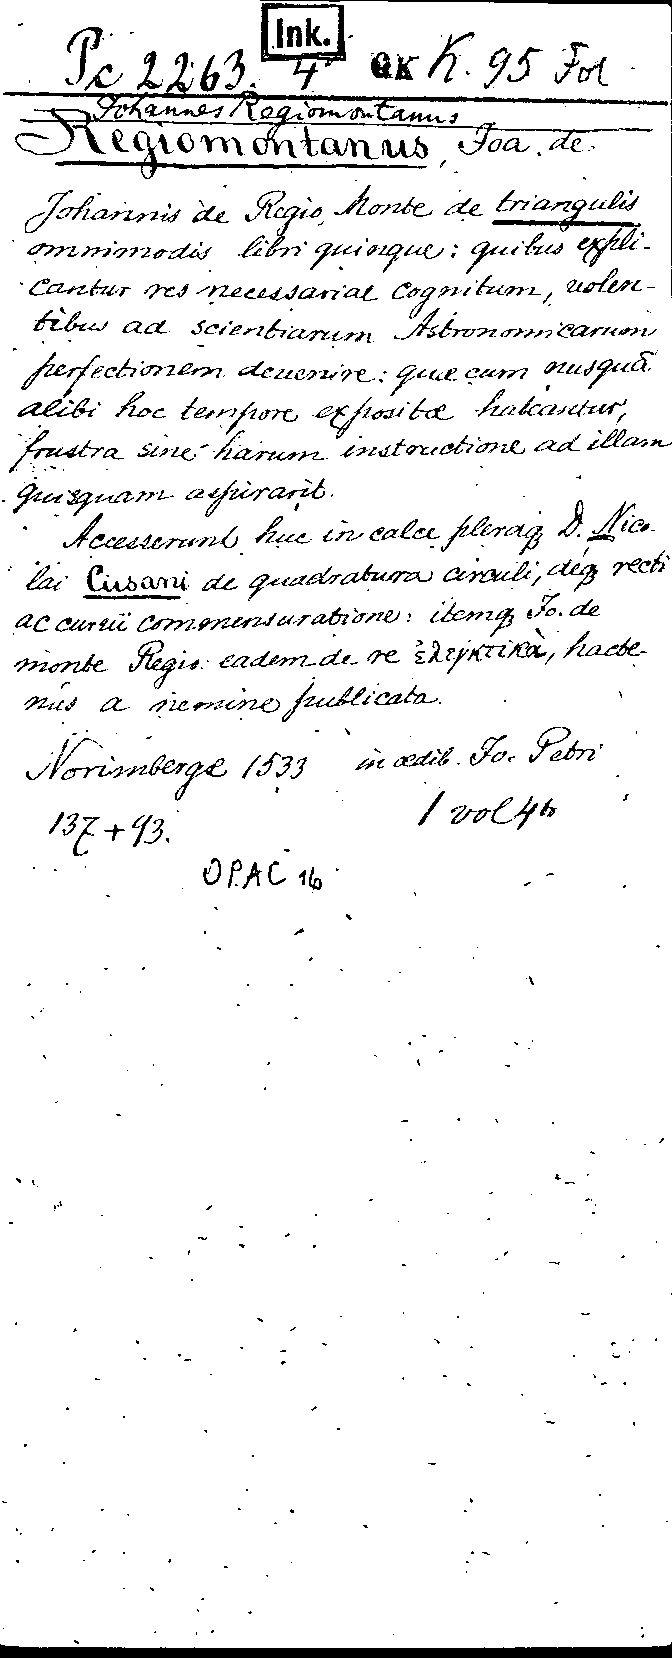 Ink.
Pc 2263. 4° QK K. 95 Fol
Johannes Regiomontanus
Regiomontanus, Joa. de.
Johannis de Regio Monte de triangulis
omnimodis libri quinque: quibus expli-
cantur res necessariae cognitum, volen-
tibus ad scientiarum Astronomicarum
perfectionem devenire: quae cum nusquā
alibi hoc tempore expositae habeantur,
frustra sine harum instructione ad illam
quisquam aspirarit.
Accesserunt huc in calce pleraqȝ D. Nico-
lai Cusani de quadratura circuli, deqȝ recti
ac curui commensuratione: itemqȝ Jo. de
monte Regio eadem de re ἐλεγκτικὰ, hacte-
nus a nemine publicata.
Norimbergae 1533 in aedib. Jo. Petri
137 + 93. 1 vol 4to
OPAC 16